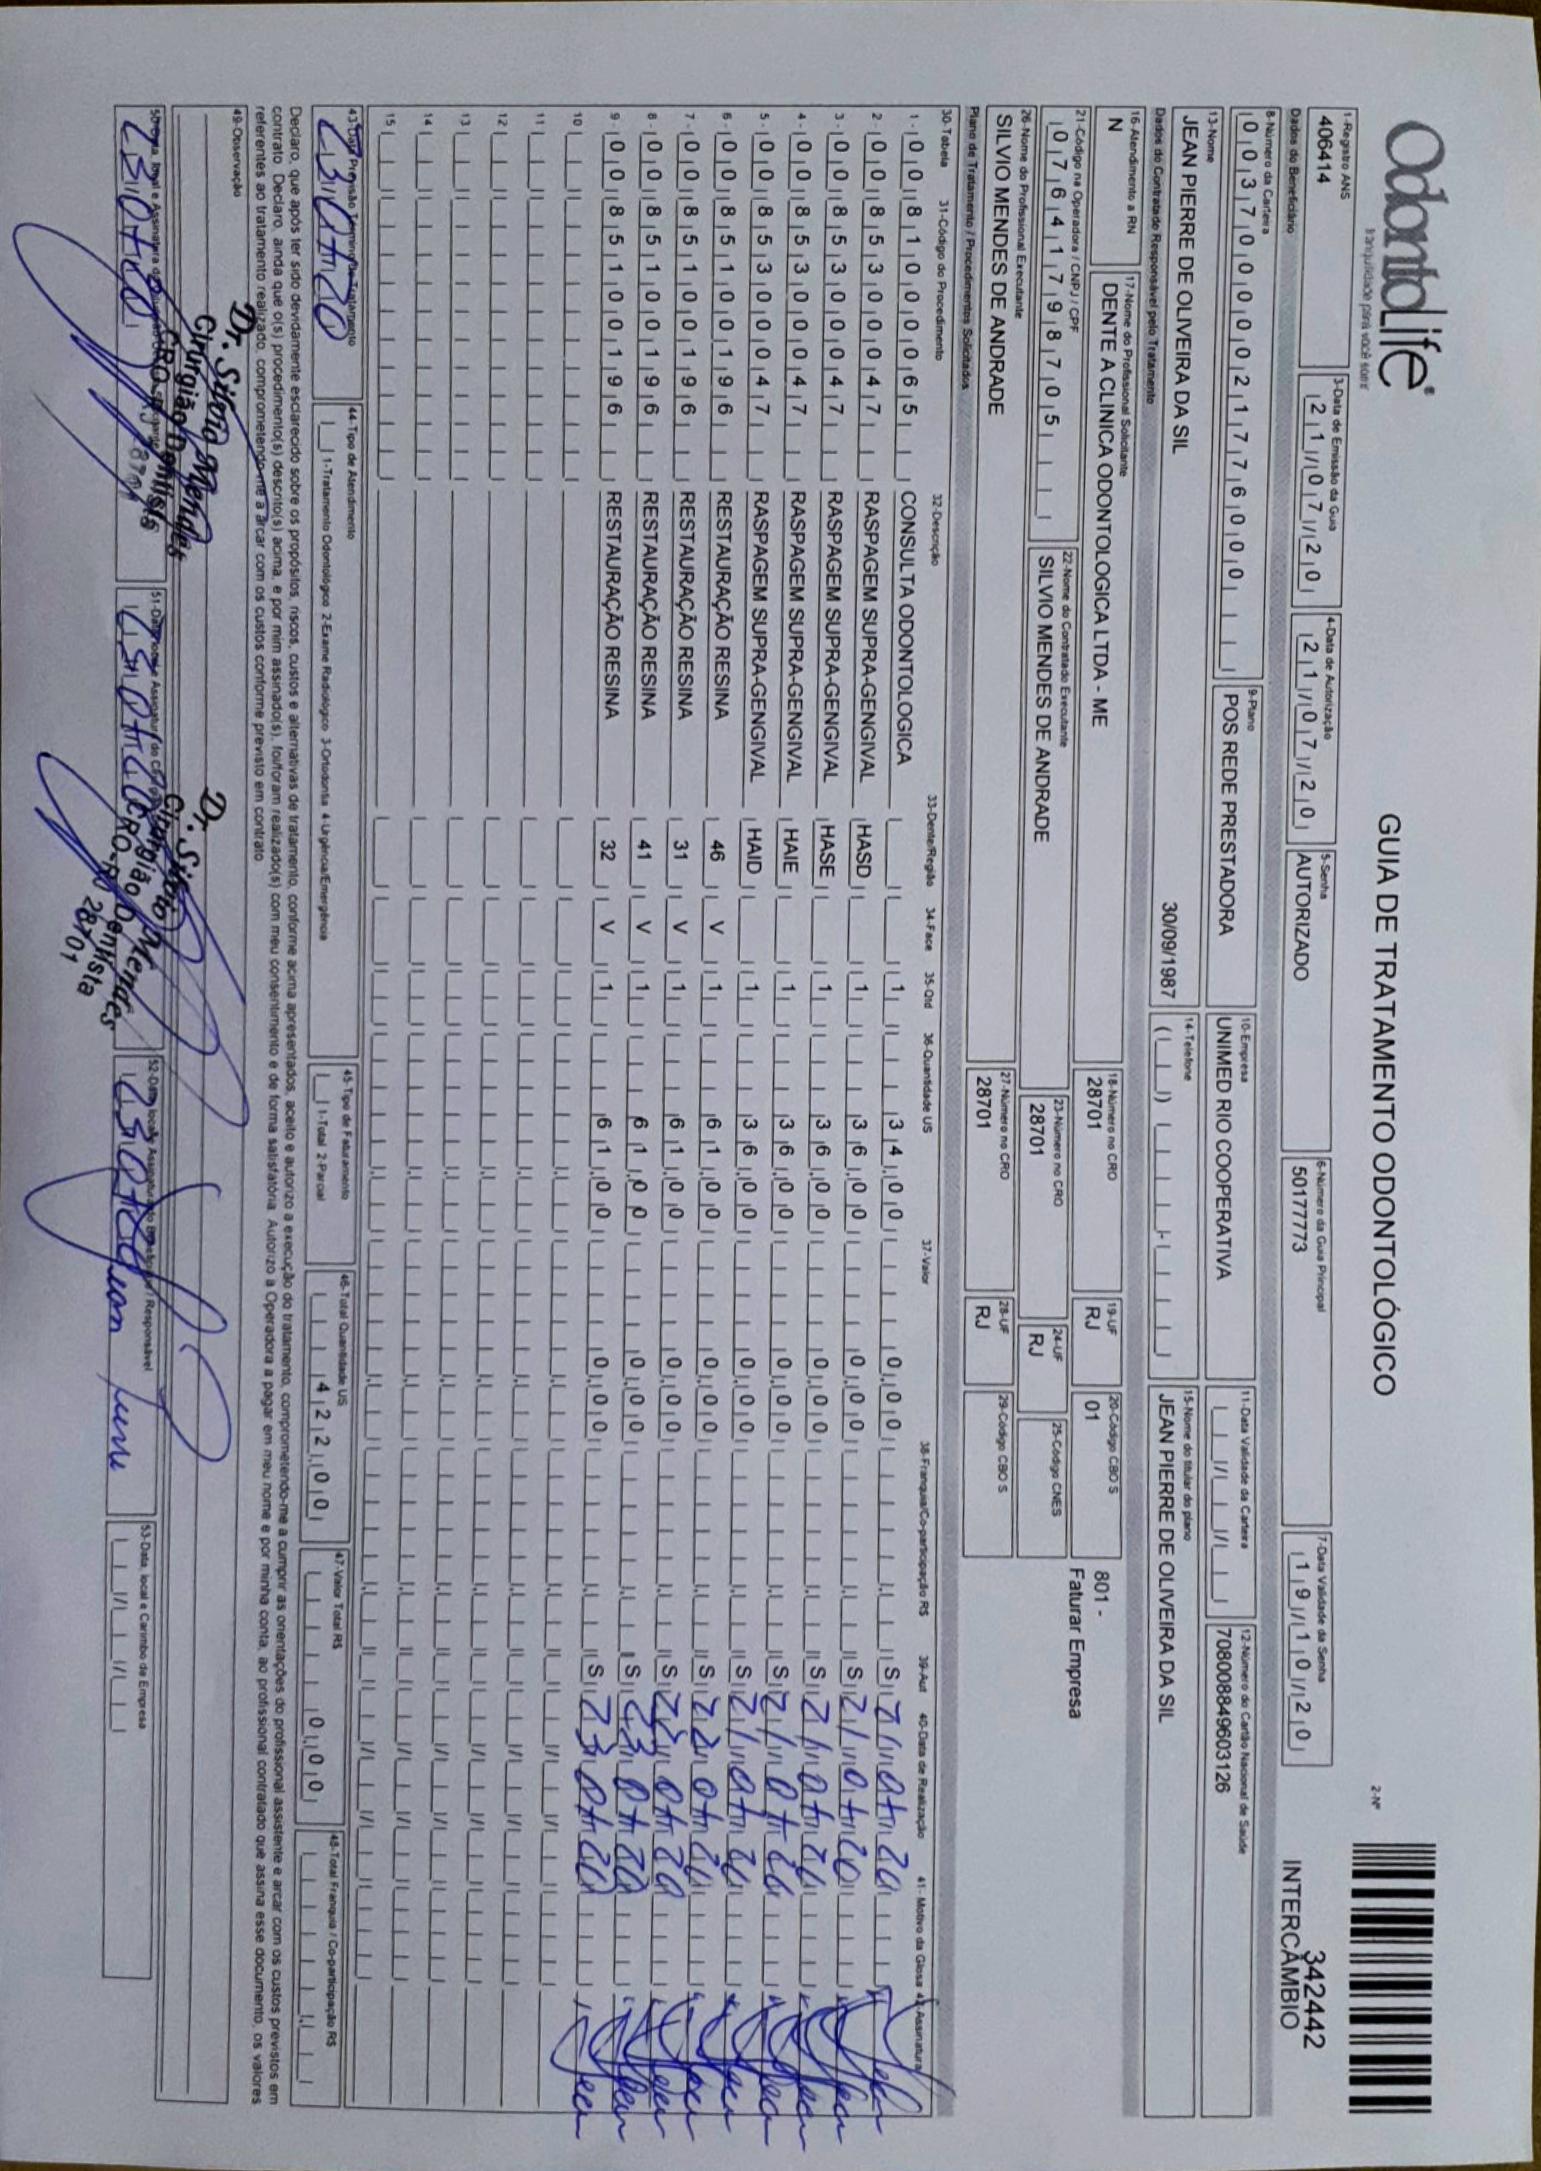 OdontoLife®
tranquilidade para você sorrir
GUIA DE TRATAMENTO ODONTOLÓGICO
2-Nº
342442
INTERCÂMBIO
1-Registro ANS
406414
3-Data de Emissão da Guia
21/07/20
4-Data de Autorização
21/07/20
5-Senha
AUTORIZADO
6-Número da Guia Principal
50177773
7-Data Validade da Senha
19/10/20
Dados do Beneficiário
8-Número da Carteira
00370000021776000
9-Plano
POS REDE PRESTADORA
10-Empresa
UNIMED RIO COOPERATIVA
11-Data Validade da Carteira
12-Número do Cartão Nacional de Saúde
708008849603126
13-Nome
JEAN PIERRE DE OLIVEIRA DA SIL
30/09/1987
14-Telefone
15-Nome do titular do plano
JEAN PIERRE DE OLIVEIRA DA SIL
Dados do Contratado Responsável pelo Tratamento
16-Atendimento a RN
N
17-Nome do Profissional Solicitante
DENTE A CLINICA ODONTOLOGICA LTDA - ME
18-Número no CRO
28701
19-UF
RJ
20-Código CBO S
01
801 -
Faturar Empresa
21-Código na Operadora / CNPJ / CPF
07641798705
22-Nome do Contratado Executante
SILVIO MENDES DE ANDRADE
23-Número no CRO
28701
24-UF
RJ
25-Código CNES
26-Nome do Profissional Executante
SILVIO MENDES DE ANDRADE
27-Número no CRO
28701
28-UF
RJ
29-Código CBO S
Plano de Tratamento / Procedimentos Solicitados
30-Tabela 31-Código do Procedimento 32-Descrição 33-Dente/Região 34-Face 35-Qtd 36-Quantidade US 37-Valor 38-Franquia/Co-participação R$ 39-Aut 40-Data de Realização 41- Motivo da Glosa 42-Assinatura
1- 00 81000065 CONSULTA ODONTOLOGICA 1 34,00 0,00 S 21/07/20
2- 00 85300047 RASPAGEM SUPRA-GENGIVAL HASD 1 36,00 0,00 S 21/07/20
3- 00 85300047 RASPAGEM SUPRA-GENGIVAL HASE 1 36,00 0,00 S 21/07/20
4- 00 85300047 RASPAGEM SUPRA-GENGIVAL HAIE 1 36,00 0,00 S 21/07/20
5- 00 85300047 RASPAGEM SUPRA-GENGIVAL HAID 1 36,00 0,00 S 21/07/20
6- 00 85100196 RESTAURAÇÃO RESINA 46 V 1 61,00 0,00 S 22/07/20
7- 00 85100196 RESTAURAÇÃO RESINA 31 V 1 61,00 0,00 S 22/07/20
8- 00 85100196 RESTAURAÇÃO RESINA 41 V 1 61,00 0,00 S 23/07/20
9- 00 85100196 RESTAURAÇÃO RESINA 32 V 1 61,00 0,00 S 23/07/20
10
11
12
13
14
15
43-Data Previsão Término do Tratamento
23/07/20
44-Tipo de Atendimento
1-Tratamento Odontológico 2-Exame Radiológico 3-Ortodontia 4-Urgência/Emergência
45-Tipo de Faturamento
1-Total 2-Parcial
46-Total Quantidade US
422,00
47-Valor Total R$
0,00
48-Total Franquia / Co-participação R$
Declaro, que após ter sido devidamente esclarecido sobre os propósitos, riscos, custos e alternativas de tratamento, conforme acima apresentados, aceito e autorizo a execução do tratamento, comprometendo-me a cumprir as orientações do profissional assistente e arcar com os custos previstos em
contrato. Declaro, ainda que o(s) procedimento(s) descrito(s) acima, e por mim assinado(s), foi/foram realizado(s) com meu consentimento e de forma satisfatória. Autorizo a Operadora a pagar em meu nome e por minha conta, ao profissional contratado que assina esse documento, os valores
referentes ao tratamento realizado, comprometendo-me a arcar com os custos conforme previsto em contrato
49-Observação
23/07/20
Dr. Silvio Mendes
Cirurgião Dentista
51-Data, local e Assinatura do Cirurgião
23/07/20
Dr. Silvio Mendes
Cirurgião Dentista
CRO-RJ 28701
52-Data, local e Assinatura do Beneficiário / Responsável
23/07/20
53-Data, local e Carimbo da Empresa